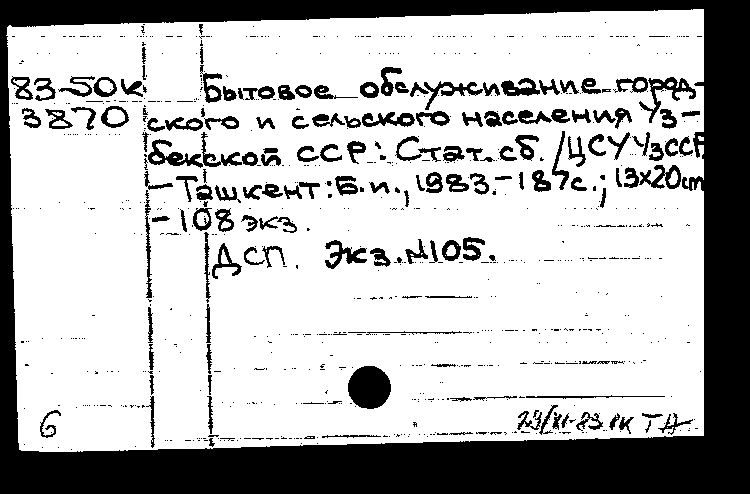 83-50к Бытовое обслуживание город-
3870 ского и сельского населения Уз-
бекской ССР: Стат. сб. /ЦСУ УзССР.
- Ташкент: Б.и., 1983. - 187с.; 13х20cm
- 108 экз.
ДСП. Экз. №105.
6 29/XI-83 РК ТА